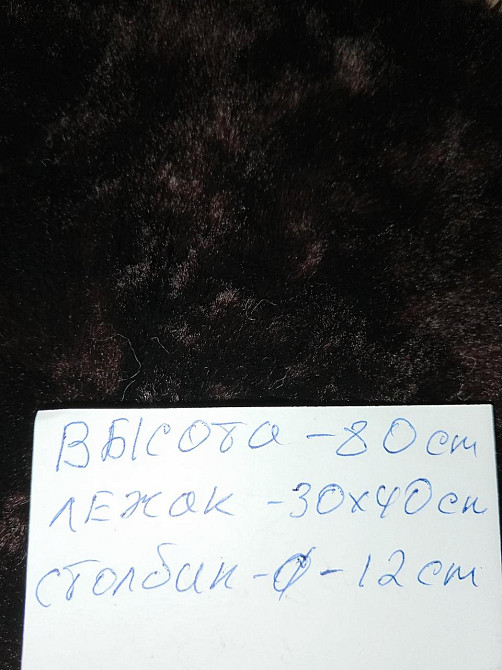 ВЫСОТА - 80 cm
ЛЕЖАК - 30х40 см
СТОЛБИК - Ø - 12 cm